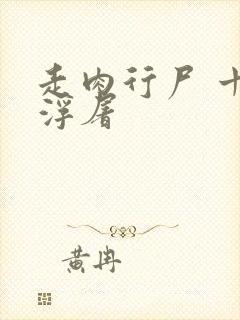 走肉行尸 十
浮屠
黄冉